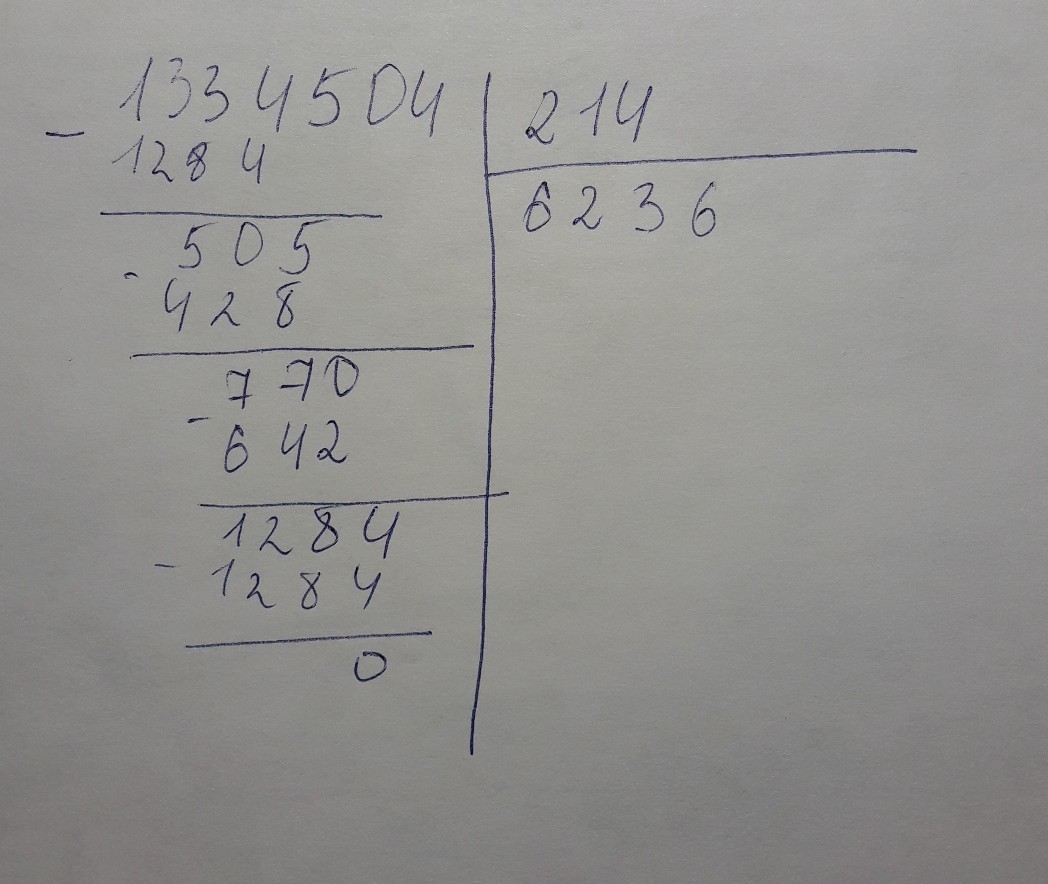 1334504 214
- 1284 6236
505
- 428
770
- 642
1284
- 1284
0